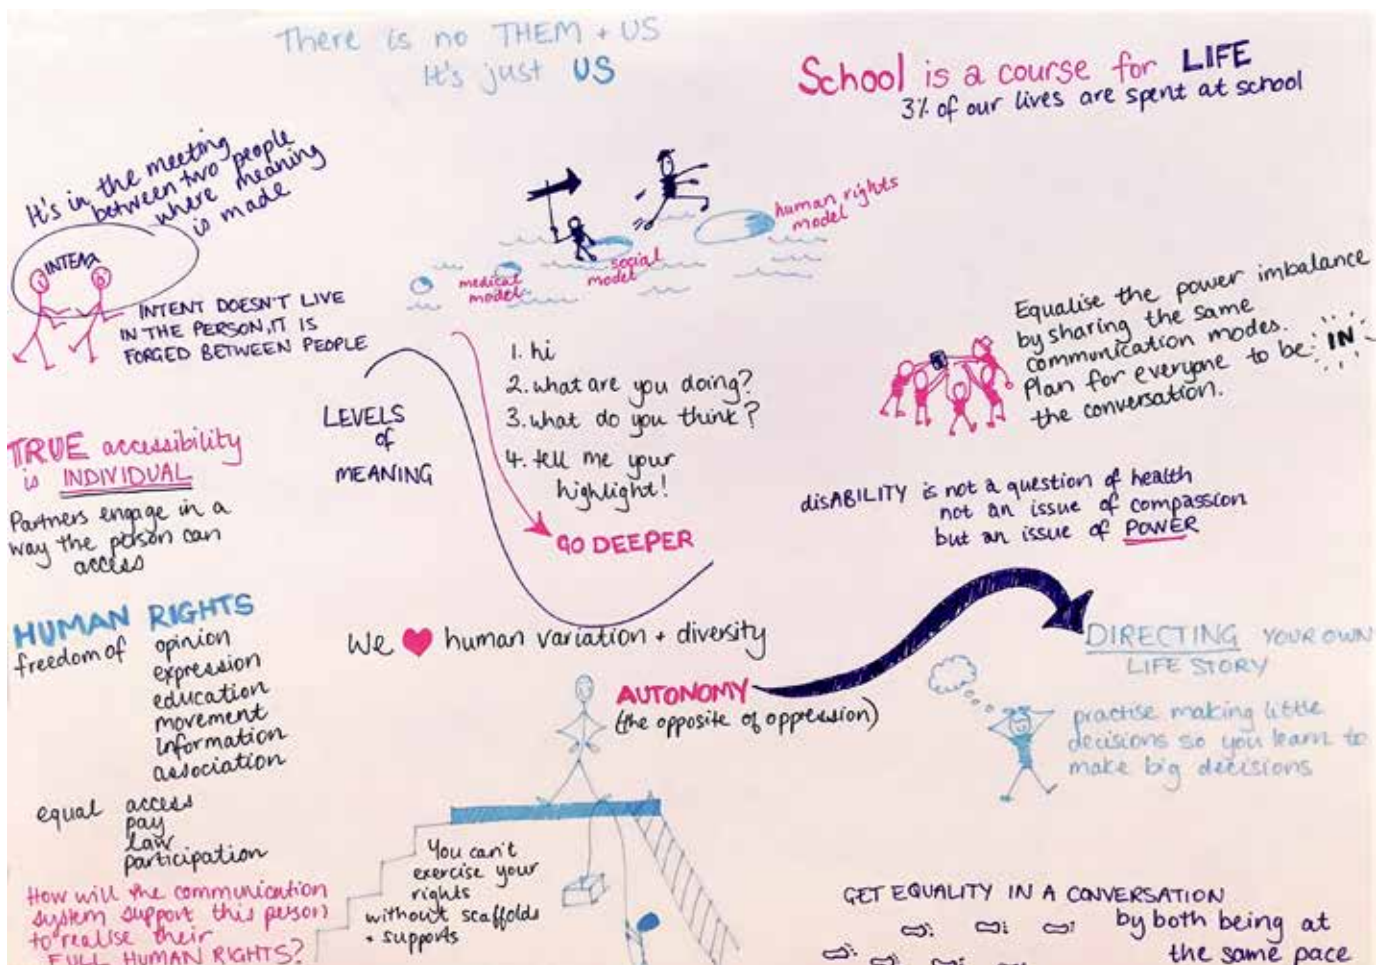 There is no THEM + US
It's just US
School is a course for LIFE
3% of our lives are spent at school
It's in the meeting
between two people
where meaning
is made
INTENT
INTENT DOESN'T LIVE
IN THE PERSON, IT IS
FORGED BETWEEN PEOPLE
medical
model
social
model
human rights
model
LEVELS
of
MEANING
1. hi
2. what are you doing?
3. what do you think?
4. tell me your
highlight!
GO DEEPER
Equalise the power imbalance
by sharing the same
communication modes.
Plan for everyone to be IN
the conversation.
TRUE accessibility
is INDIVIDUAL
Partners engage in a
way the person can
access
disABILITY is not a question of health
not an issue of compassion
but an issue of POWER
HUMAN RIGHTS
freedom of opinion
expression
education
movement
information
association
equal access
pay
law
participation
How will the communication
system support this person
to realise their
FULL HUMAN RIGHTS?
We ♥ human variation + diversity
AUTONOMY
(the opposite of oppression)
DIRECTING YOUR OWN
LIFE STORY
practise making little
decisions so you learn to
make big decisions
You can't
exercise your
rights
without scaffolds
+ supports
GET EQUALITY IN A CONVERSATION
by both being at
the same pace